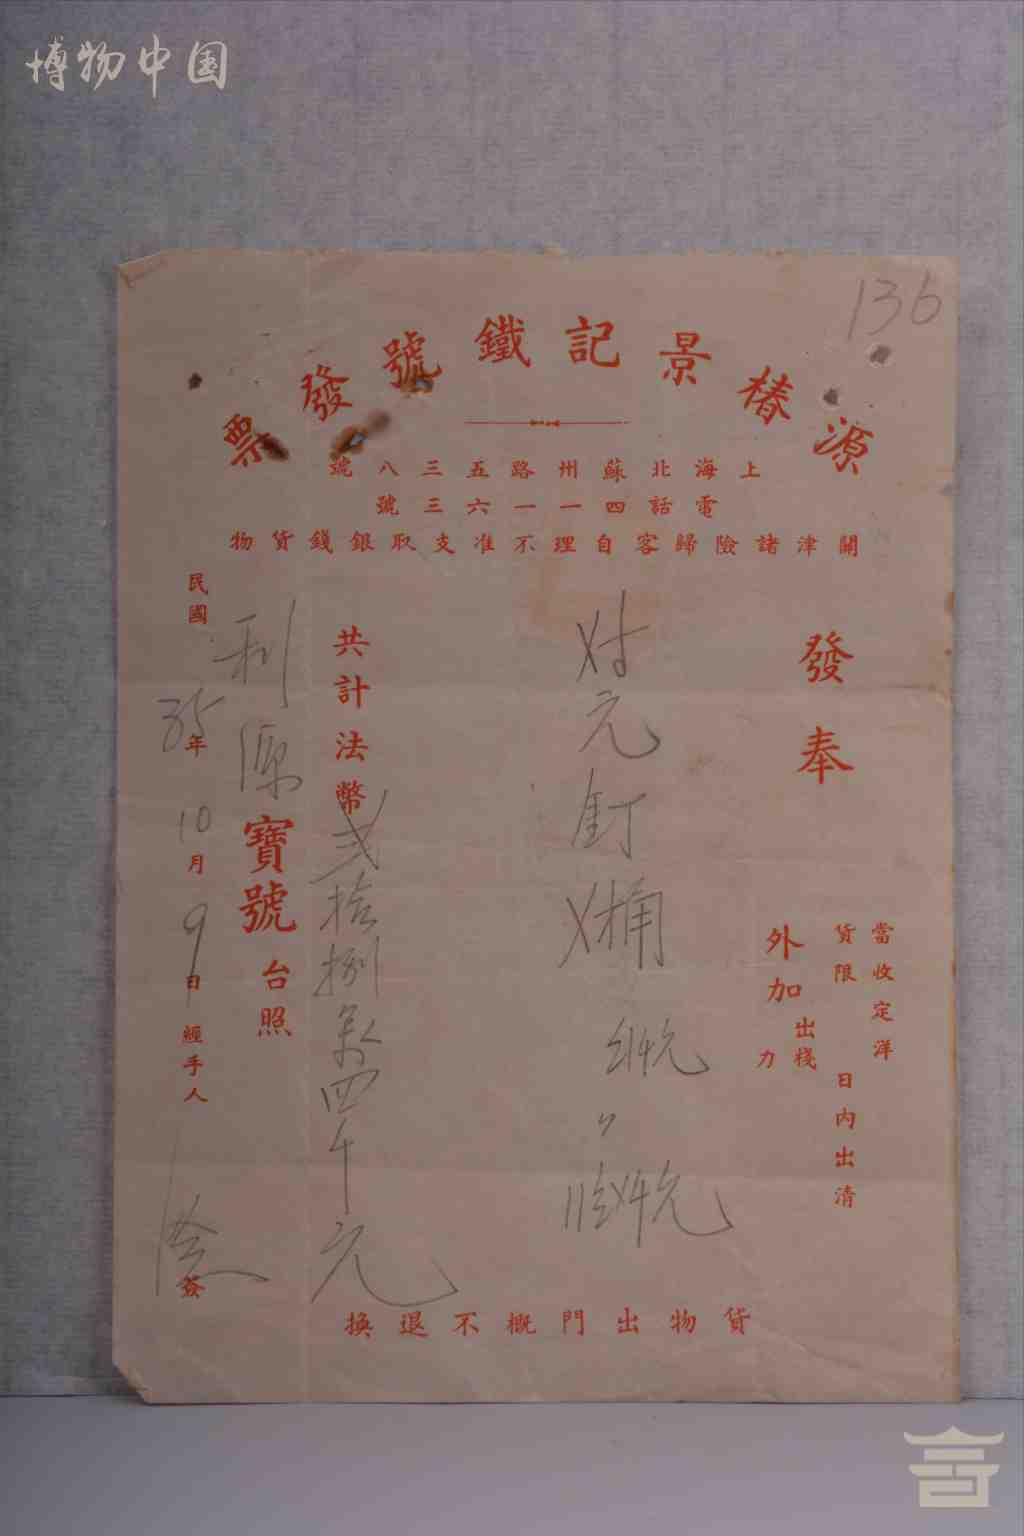 博物中国
136
源椿景記鐵號發票
上海北蘇州路五三八號
電話四一一六三號
關津諸險歸客自理不准支取銀錢貨物
發奉
當收定洋
貨限 日內出清
外加出棧力
元釘
桶
共計法幣貳拾捌萬四千元
利源寶號台照
民國35年10月9日經手人 簽
貨物出門概不退換